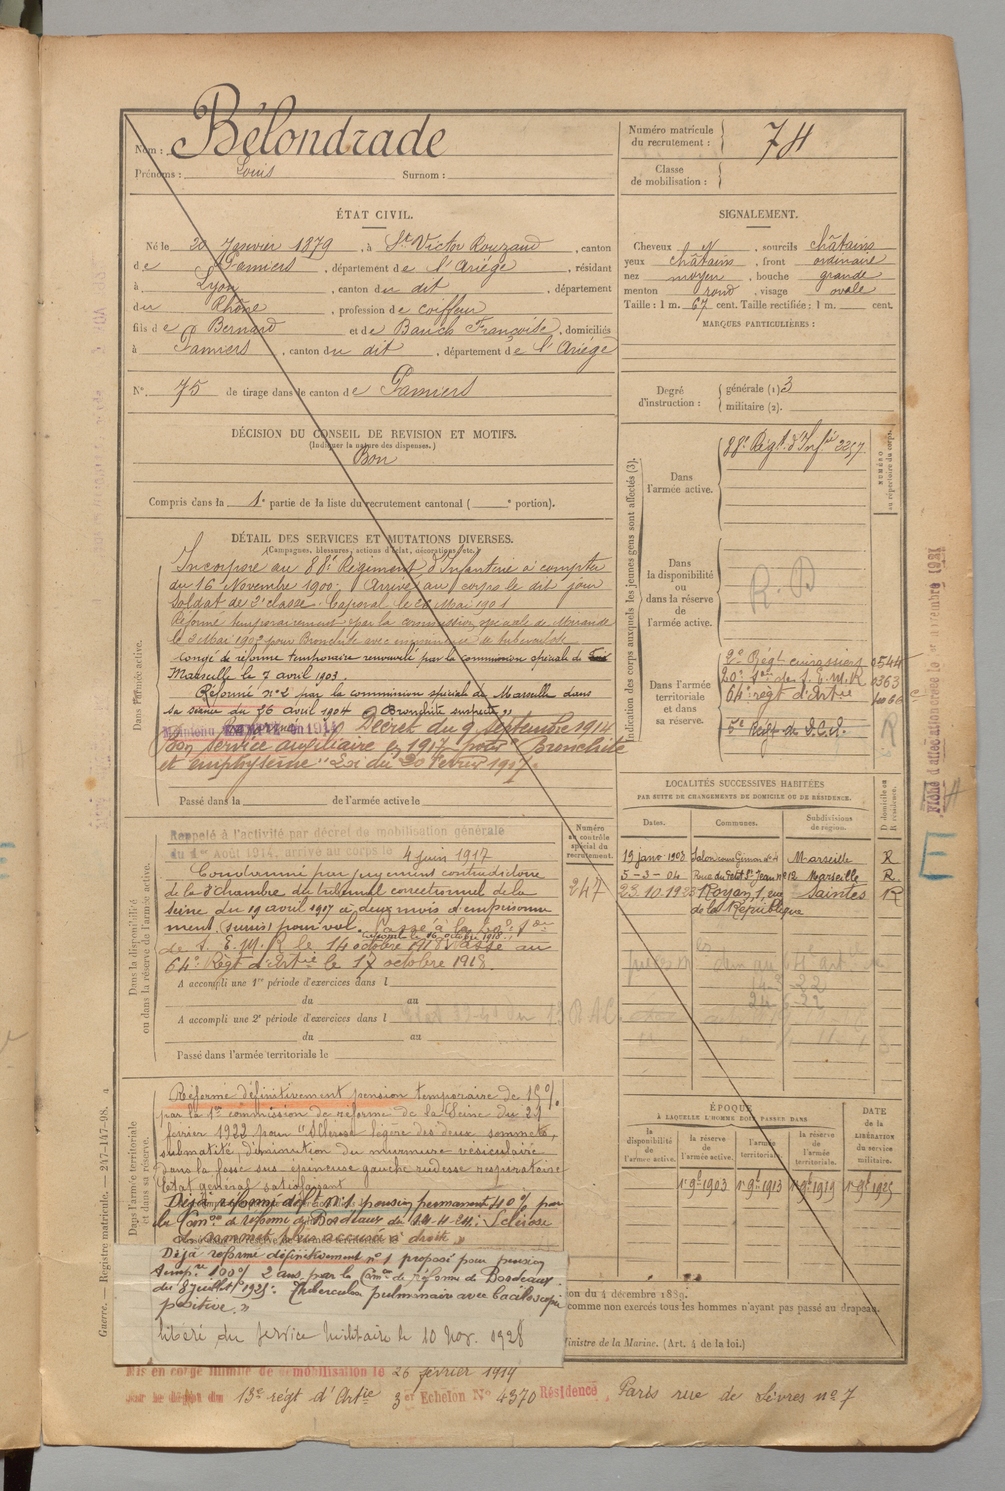 Nom : Bélondrade
Prénoms : Louis Surnom :
Numéro matricule du recrutement : 74
Classe de mobilisation :
ÉTAT CIVIL.
Né le 20 Janvier 1879, à St Victor Rouzaud, canton
de Pamiers, département de l'Ariége, résidant
à Lyon, canton du dit, département
du Rhône, profession de coiffeur
fils de Bernard et de Bauch Françoise, domiciliés
à Pamiers, canton du dit, département de l'Ariége
N° 75 de tirage dans le canton de Pamiers
SIGNALEMENT.
Cheveux chn, sourcils châtains
yeux châtains, front ordinaire
nez moyen, bouche grande
menton rond, visage ovale
Taille : 1 m. 67 cent. Taille rectifiée : 1 m. cent.
MARQUES PARTICULIÈRES :
Degré d'instruction : générale (1) 3
militaire (2).
DÉCISION DU CONSEIL DE REVISION ET MOTIFS.
(Indiquer la nature des dispenses.)
Bon
Compris dans la 1e partie de la liste du recrutement cantonal ( e portion).
DÉTAIL DES SERVICES ET MUTATIONS DIVERSES.
(Campagnes, blessures, actions d'éclat, décorations, etc.)
Dans l'armée active.
Incorporé au 88e Régiment d'Infanterie à compter
du 16 Novembre 1900. Arrivé au corps le dit jour
Soldat de 2e classe. Caporal le Mai 1901
Réformé temporairement par la commission spéciale de Mirande
le 3 Mai 1902 pour Bronchite avec imminence de tuberculose
congé de réforme temporaire renouvelé par la commission spéciale de
Marseille le 7 avril 1903.
Réformé n° 2 par la commission spéciale de Marseille dans
sa séance du 26 avril 1904 "Bronchite suspecte"
Maintenu Décret du 9 septembre 1914
Bon service auxiliaire en 1917 pour "Bronchite
et emphysème" Loi du 20 Février 1917.
Passé dans la de l'armée active le
Indication des corps auxquels les jeunes gens sont affectés (3).
NUMÉRO au répertoire du corps.
Dans l'armée active. 88e Régt d'Infie 2257
Dans la disponibilité ou dans la réserve de l'armée active. R. D
Dans l'armée territoriale et dans sa réserve.
2e Régt cuirassiers 0544
20e Son de S.E.M.R 0363
64e régt d'Artie
5e Régt de D.C.A.
LOCALITÉS SUCCESSIVES HABITÉES
PAR SUITE DE CHANGEMENTS DE DOMICILE OU DE RÉSIDENCE.
Dates. Communes. Subdivisions de région. D domicile ou R résidence.
19 janv 1903 Salon Marseille R
5-3-04 Rue du Petit St Jean n° 12 Marseille R
23.10.1923 Royan, 1, rue de la République Saintes R
Dans la disponibilité ou dans la réserve de l'armée active.
Numéro au contrôle spécial du recrutement.
247
Rappelé à l'activité par décret de mobilisation générale
du 1er Août 1914, arrivé au corps le 4 juin 1917
Condamné par jugement contradictoire
de la 8e chambre du tribunal correctionnel de la
Seine du 19 avril 1917 à deux mois d'emprisonne
ment (sursis) pour vol. Passé à la 20e Son
Caporal le 16 octobre 1918.
de S. E. M. R le 14 octobre 1918 Passé au
64e Régt d'Artie le 17 octobre 1918.
A accompli une 1re période d'exercices dans l
du au
A accompli une 2e période d'exercices dans l
du au
Passé dans l'armée territoriale le
Dans l'armée territoriale et dans sa réserve.
Réformé définitivement pension temporaire de 15%.
par la 1re commission de réforme de la Seine du 21
février 1922 pour "Sclérose légère des deux sommets,
submatité diminution du murmure vésiculaire
dans la fosse sus-épineuse gauche rudesse respiratoire
Etat général satisfaisant
Déjà réformé déft N° 1. pension permanent 40% par
la Comon de réforme de Bordeaux du 14-4-24: Sclérose
du sommet plus accusée à droite"
Déjà réformé définitivement n° 1 proposé pour pension
tempre 100% 2 ans par la Comon de réforme de Bordeaux
du 8 juillet 1925: Tuberculose pulmonaire avec bacilloscopie
positive."
libéré du service militaire le 10 Nov. 1928
ÉPOQUE
À LAQUELLE L'HOMME DOIT PASSER DANS
la disponibilité de l'armée active.
la réserve de l'armée active. 1er 9bre 1903
l'armée territoriale. 1er 9bre 1913
la réserve de l'armée territoriale. 1er 9bre 1919
DATE de la LIBÉRATION du service militaire. 1er 9bre 1925
ion du 4 décembre 1889.
comme non exercés tous les hommes n'ayant pas passé au drapeau.
inistre de la Marine. (Art. 4 de la loi.)
Mis en congé illimité de démobilisation le 26 février 1919
par le dépôt du 13e régt d'Artie 3e Echelon N° 4370 Résidence, Paris rue de Sèvres n° 7
Guerre. — Registre matricule. — 247-147-98.
E